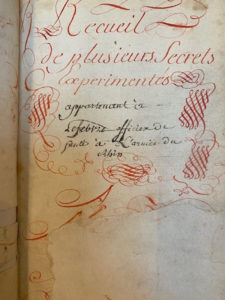 Recueil
de plusieurs Secrets
experimentés
appartenant à
Lefebvre officier de
santé à L'armée du
Rhin